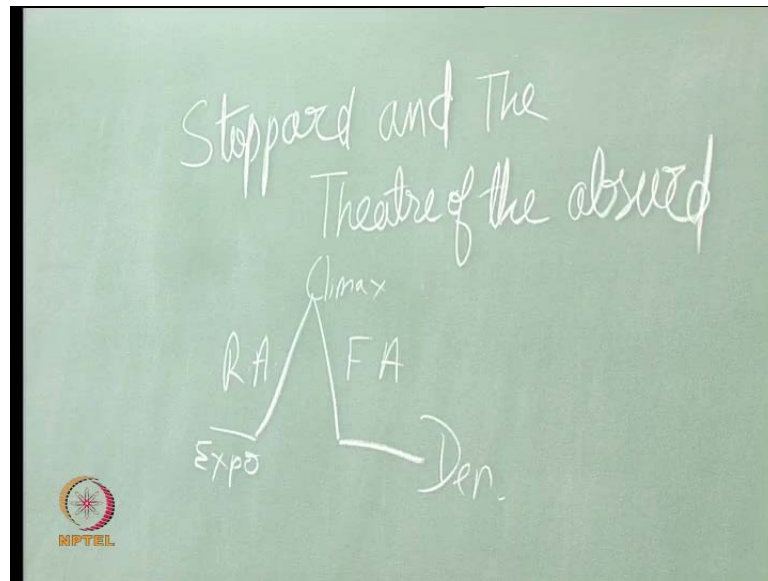 Stoppard and The
Theatre of the absurd
Climax
R A. F A
Expo
Den.
NPTEL